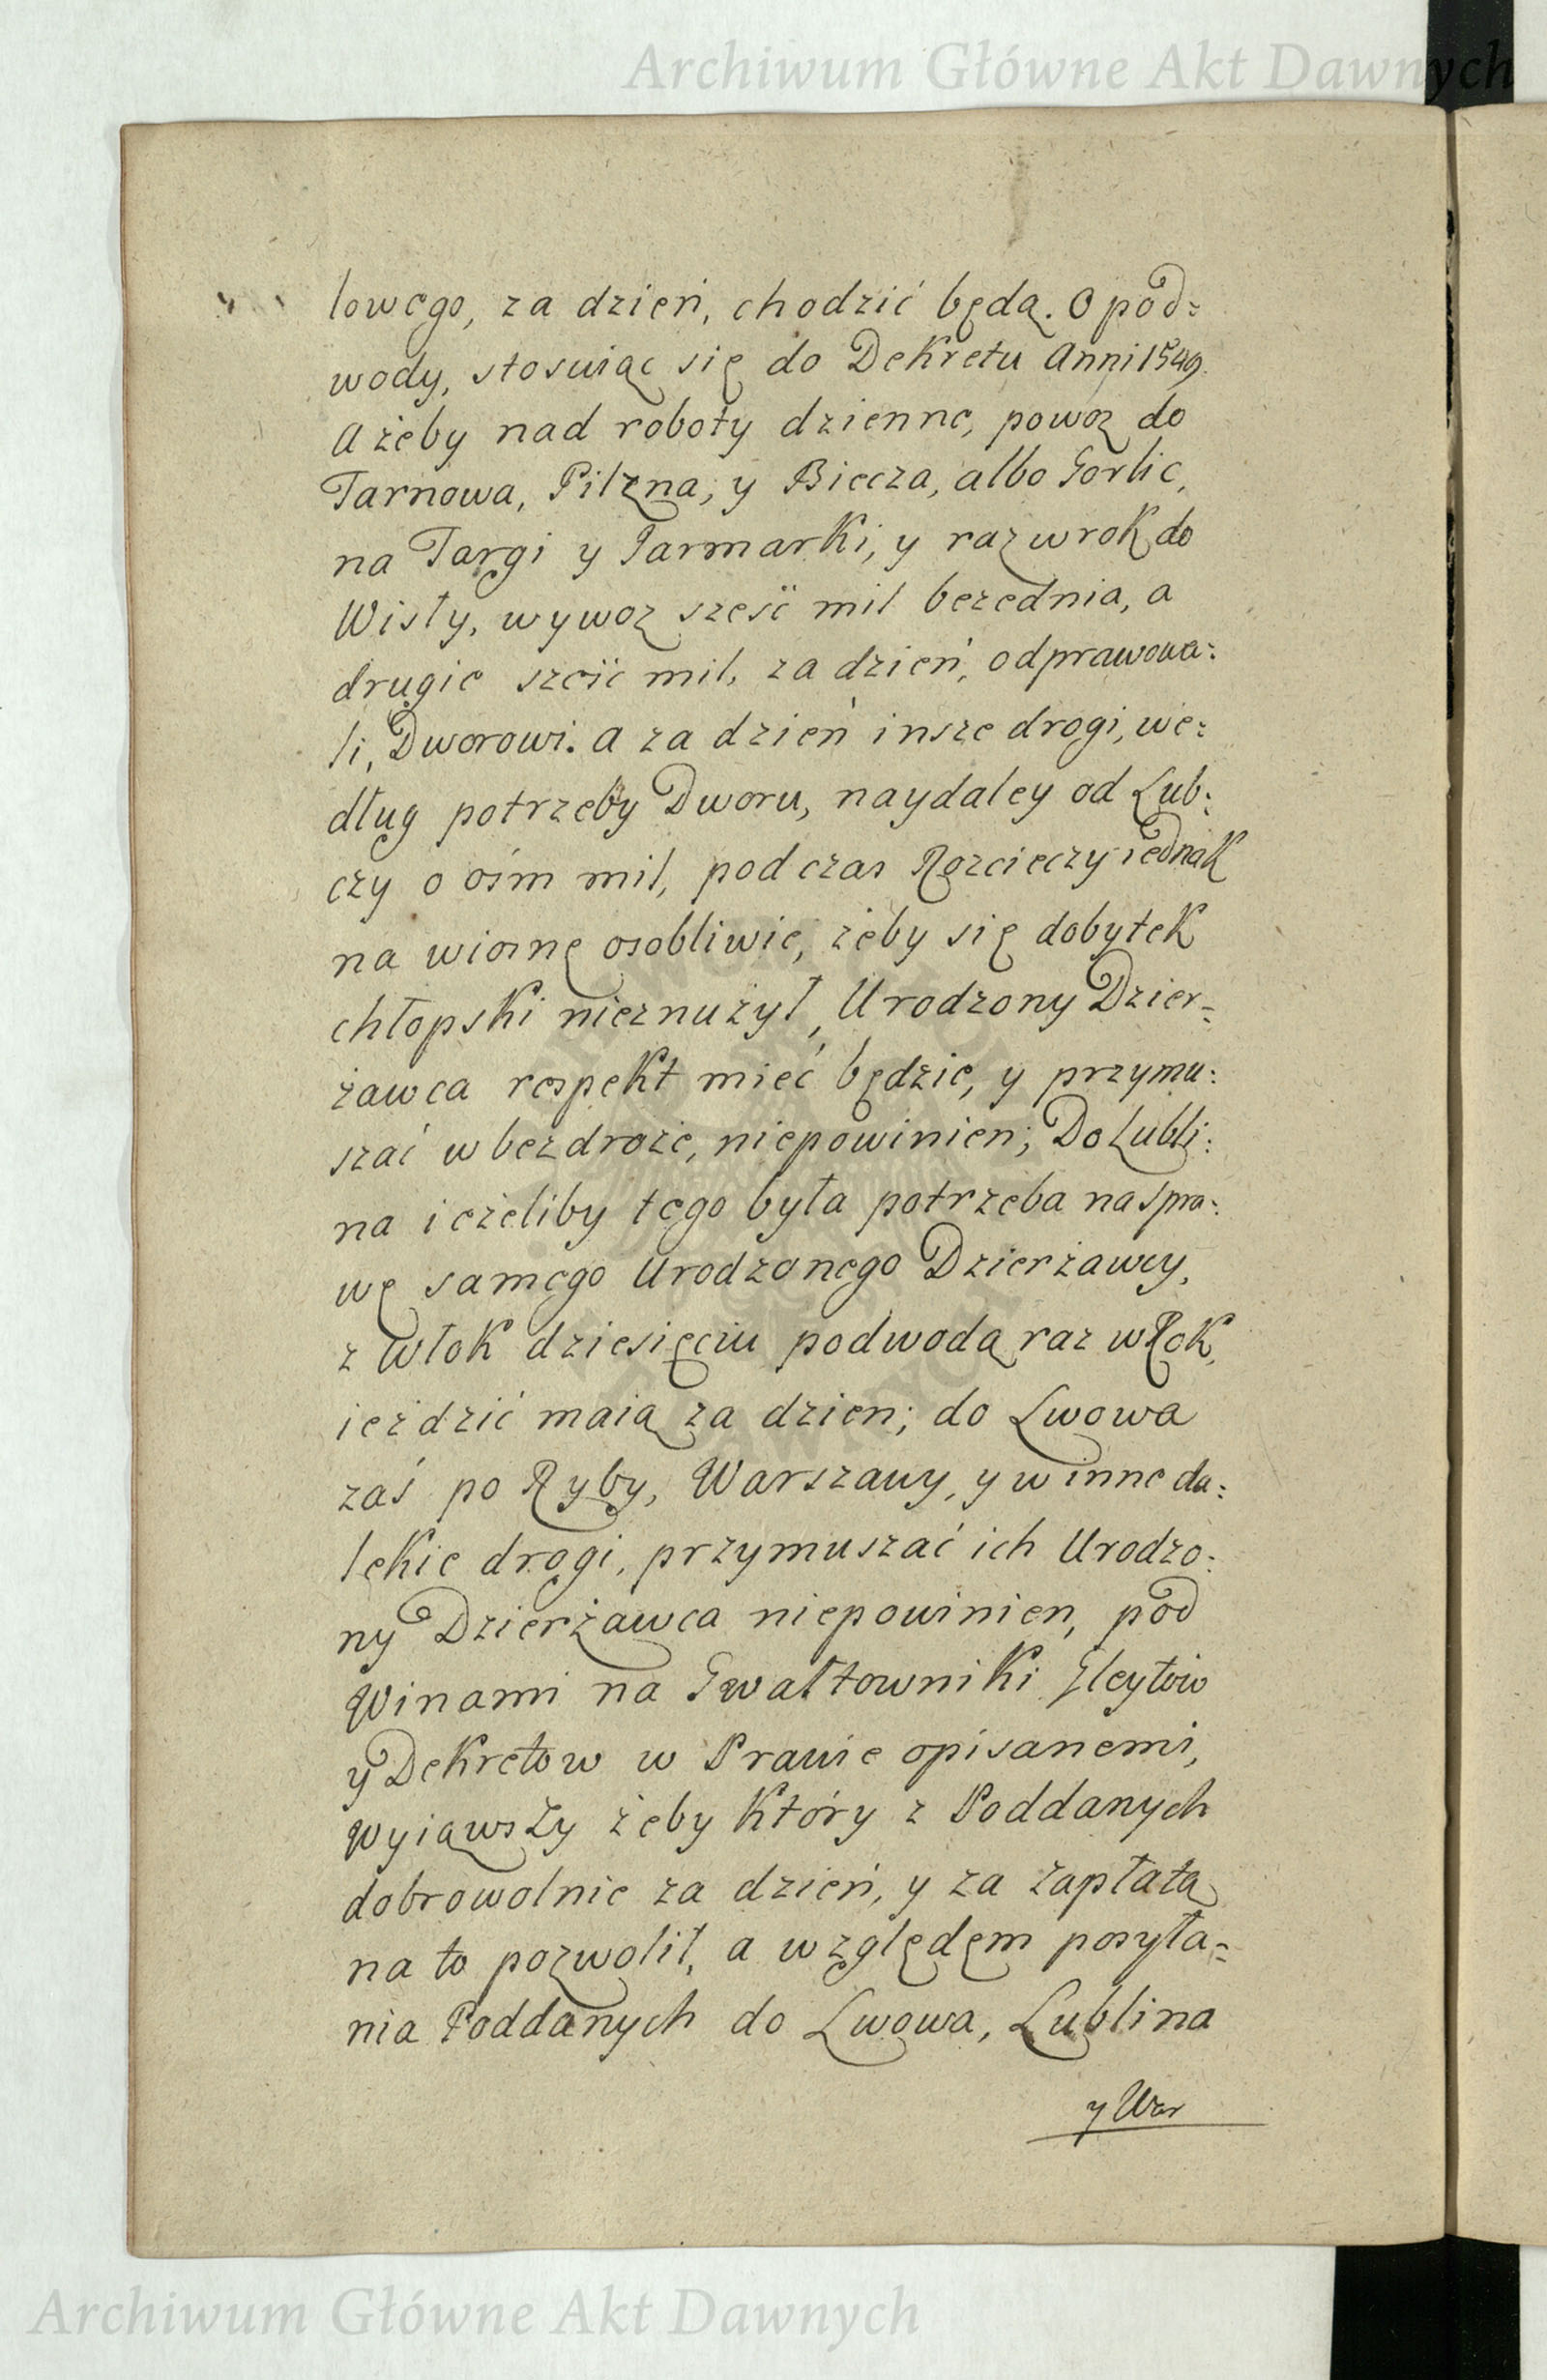 Archiwum Główne Akt Dawnych
lowego, za dzień, chodzić będą. O pod=
wody, stosuiąc się do Dekretu Anni 1549.
A żeby nad roboty dzienne, powoz do
Tarnowa, Pilzna, y Biecza, albo Gorlic,
na Targi y Jarmarki, y raz w rok do
Wisły, wywoz sześć mil bezednia, a
drugie sześć mil, za dzień, odprawowa=
li, Dworowi. A za dzień insze drogi, we=
dług potrzeby Dworu, naydaley od Lub=
czy o ośm mil, podczas Rozcieczy iednak
na wiosnę osobliwie, żeby się dobytek
chłopski nieznużył, Urodzony Dzier=
żawca respekt mieć będzie, y przymu=
szać w bezdroże, niepowinien; Do Lubli=
na ieżeliby tego była potrzeba na spra=
wę samego Urodzonego Dzierżawcy,
z Włok dziesięciu podwodą raz w Rok,
ieździć maią za dzien; do Lwowa
zaś po Ryby, Warszawy, y w inne da=
lekie drogi, przymuszać ich Urodzo=
ny Dzierżawca niepowinien, pod
Winami na Gwałtowniki Gleytow
y Dekretow w Prawie opisanemi,
Wyiąwszy żeby który z Poddanych
dobrowolnie za dzień, y za zapłatą
na to pozwolił, a względem posyła=
nia Poddanych do Lwowa, Lublina
y War
Archiwum Główne Akt Dawnych